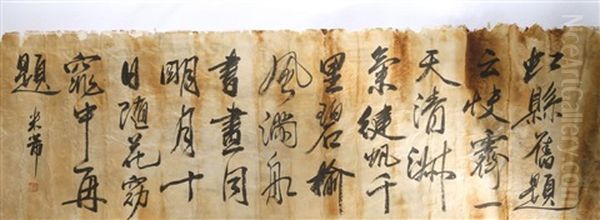 虹縣舊題
云快霽一
天清淑
氣健帆千
里碧榆
風滿舡
書畫同
明月十
日隨花窈
窕中再
題
米芾